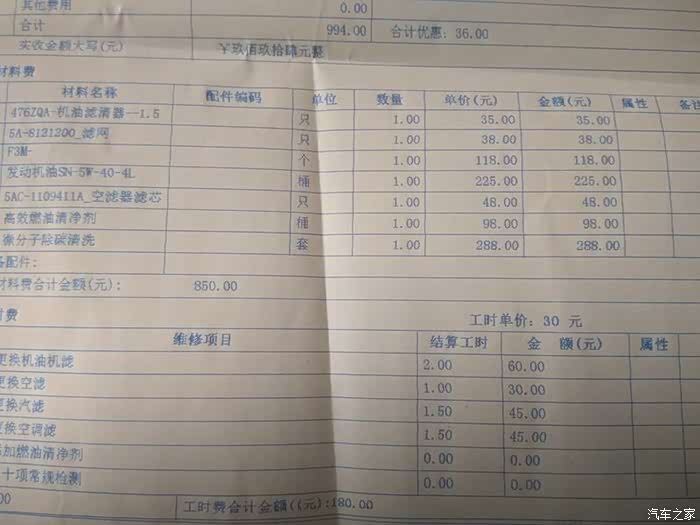 其他费用 0.00
合计 994.00 合计优惠: 36.00
实收金额大写(元) ￥玖佰玖拾肆元整
材料费
材料名称 配件编码 单位 数量 单价(元) 金额(元) 属性 备注
476ZQA-机油滤清器--1.5 只 1.00 35.00 35.00
5A-8121200_滤网 只 1.00 38.00 38.00
F3M- 个 1.00 118.00 118.00
发动机油SN-5W-40-4L 桶 1.00 225.00 225.00
5AC-1109411A_空滤器滤芯 只 1.00 48.00 48.00
高效燃油清净剂 桶 1.00 98.00 98.00
微分子除碳清洗 套 1.00 288.00 288.00
配件:
材料费合计金额(元): 850.00
时费 工时单价: 30 元
维修项目 结算工时 金 额(元) 属性
更换机油机滤 2.00 60.00
更换空滤 1.00 30.00
更换汽滤 1.50 45.00
更换空调滤 1.50 45.00
添加燃油清净剂 0.00 0.00
十项常规检测 0.00 0.00
00 工时费合计金额((元):180.00
汽车之家